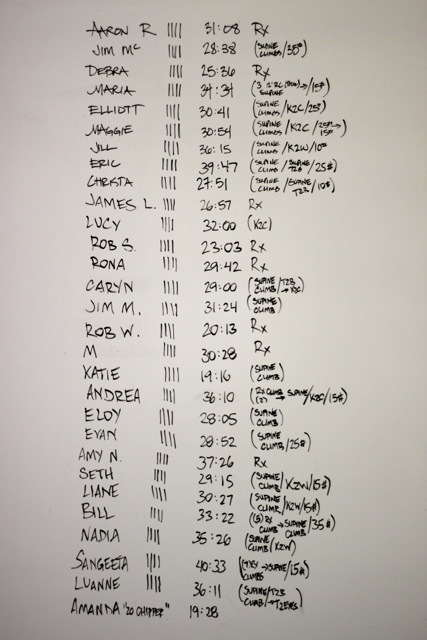 AARON R |||| 31:08 Rx
JIM Mc |||| 28:38 (SUPINE CLIMBS/35#)
DEBRA |||| 25:36 Rx
MARIA |||| 34:31 /15#)
ELLIOTT |||| 30:41 (SUPINE CLIMBS/K2C/25#)
MAGGIE |||| 30:54 (SUPINE CLIMBS/K2C/
JILL |||| 36:15 (SUPINE CLIMB/K2W/10#
ERIC |||| 39:47 (SUPINE CLIMB/SUPINE T2B/25#)
CHRISTA |||| 27:51 (SUPINE CLIMB/SUPINE T2B/10#)
JAMES L. |||| 26:57 Rx
LUCY |||| 32:00 (K2C)
ROB S. |||| 23:03 Rx
RONA |||| 29:42 Rx
CARYN |||| 29:00 (SUPINE CLIMB/T2B → K2C)
JIM M. |||| 31:24 (SUPINE CLIMB)
ROB W. |||| 20:13 Rx
M |||| 30:28 Rx
KATIE |||| 19:16 (SUPINE CLIMB)
ANDREA |||| 36:10 (Rx CLIMB (2) → SUPINE/K2C/15#)
ELOY |||| 28:05 (SUPINE CLIMB)
EVAN |||| 28:52 (SUPINE CLIMB/25#)
AMY N. |||| 37:26 Rx
SETH |||| 29:15 (SUPINE CLIMB/K2W/15#)
LIANE |||| 30:27 (SUPINE CLIMB/K2W/15#)
BILL |||| 33:22 ((5) RX CLIMB → SUPINE CLIMB/35#)
NADIA |||| 35:26 (SUPINE CLIMB/K2W)
SANGEETA |||| 40:33 → SUPINE/15#)
LUANNE |||| 36:11 (SUPINE/T2B CLIMB/
AMANDA "20 CHIPPER" 19:28